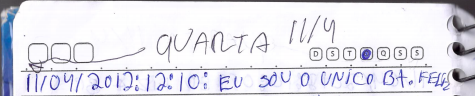 QUARTA 11/4
D S T Q S S
11/04/2012:12:10: EU SOU O UNICO Bt.